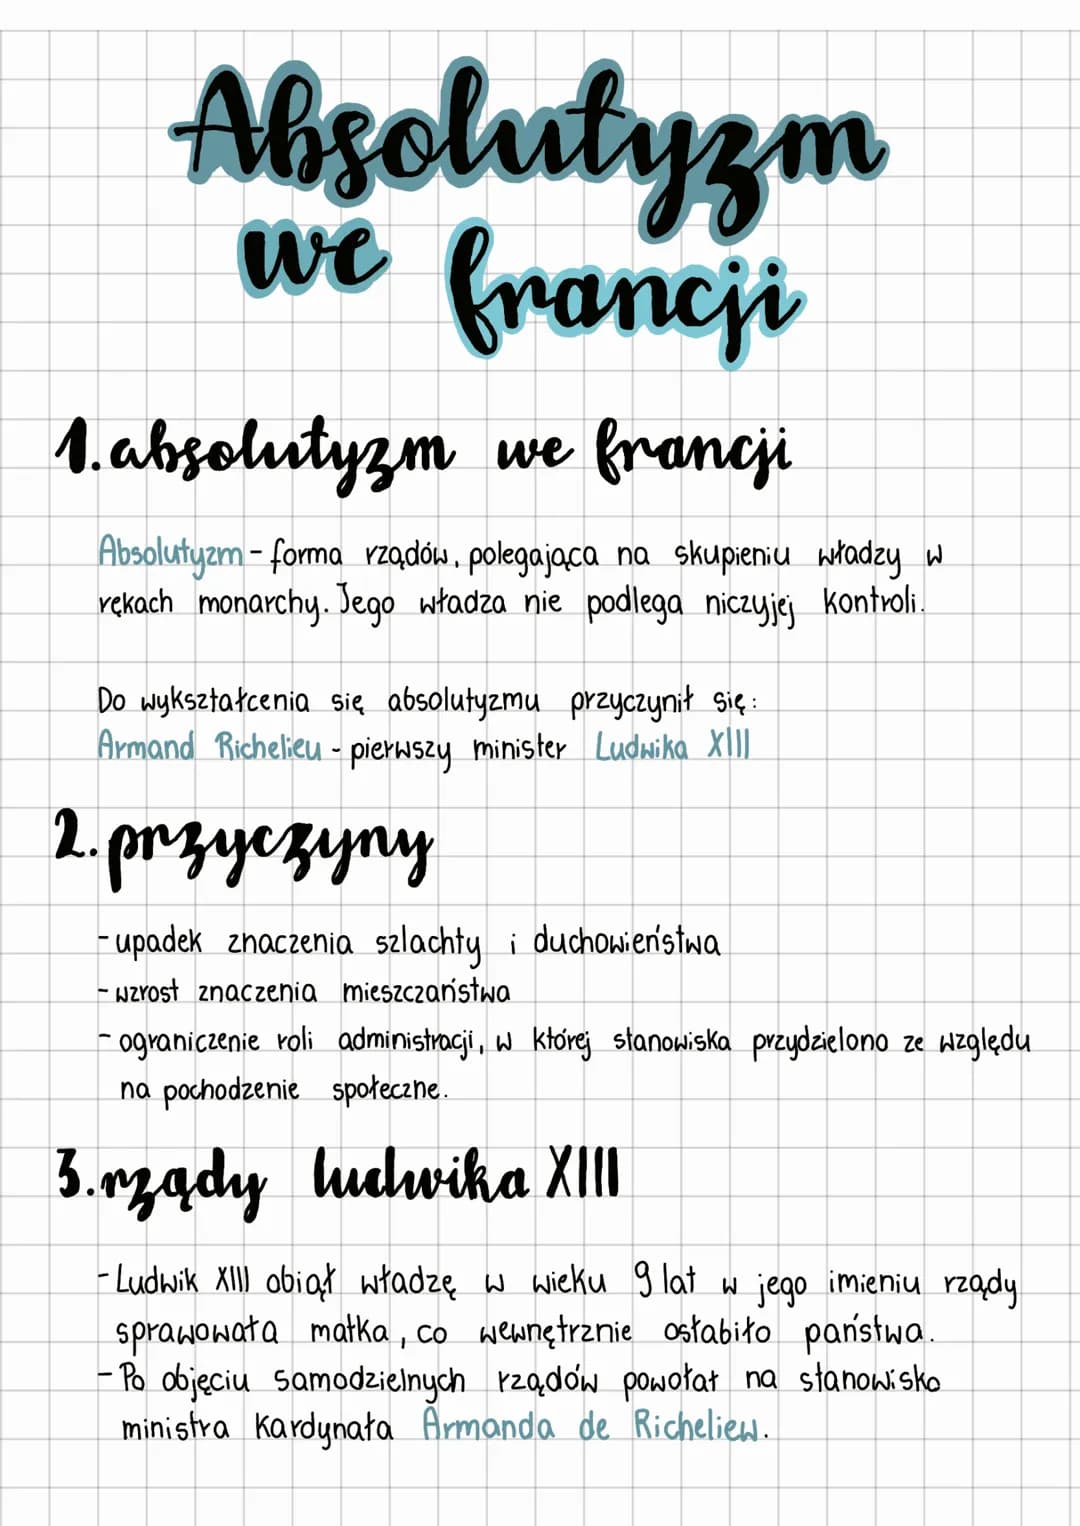 Absolutyzm
we francji
1. absolutyzm we francji
Absolutyzm - forma rządów, polegająca na skupieniu władzy w
rękach monarchy. Jego władza nie podlega niczyjej kontroli.
Do wykształcenia się absolutyzmu przyczynił się:
Armand Richelieu - pierwszy minister Ludwika XIII
2. przyczyny
- upadek znaczenia szlachty i duchowieństwa
- wzrost znaczenia mieszczaństwa
- ograniczenie roli administracji, w której stanowiska przydzielono ze względu
na pochodzenie społeczne.
3. rządy ludwika XIII
- Ludwik XIII objął władzę w wieku 9 lat w jego imieniu rządy
sprawowała matka, co wewnętrznie osłabiło państwa.
- Po objęciu samodzielnych rządów powołał na stanowisko
ministra kardynała Armanda de Richeliew.